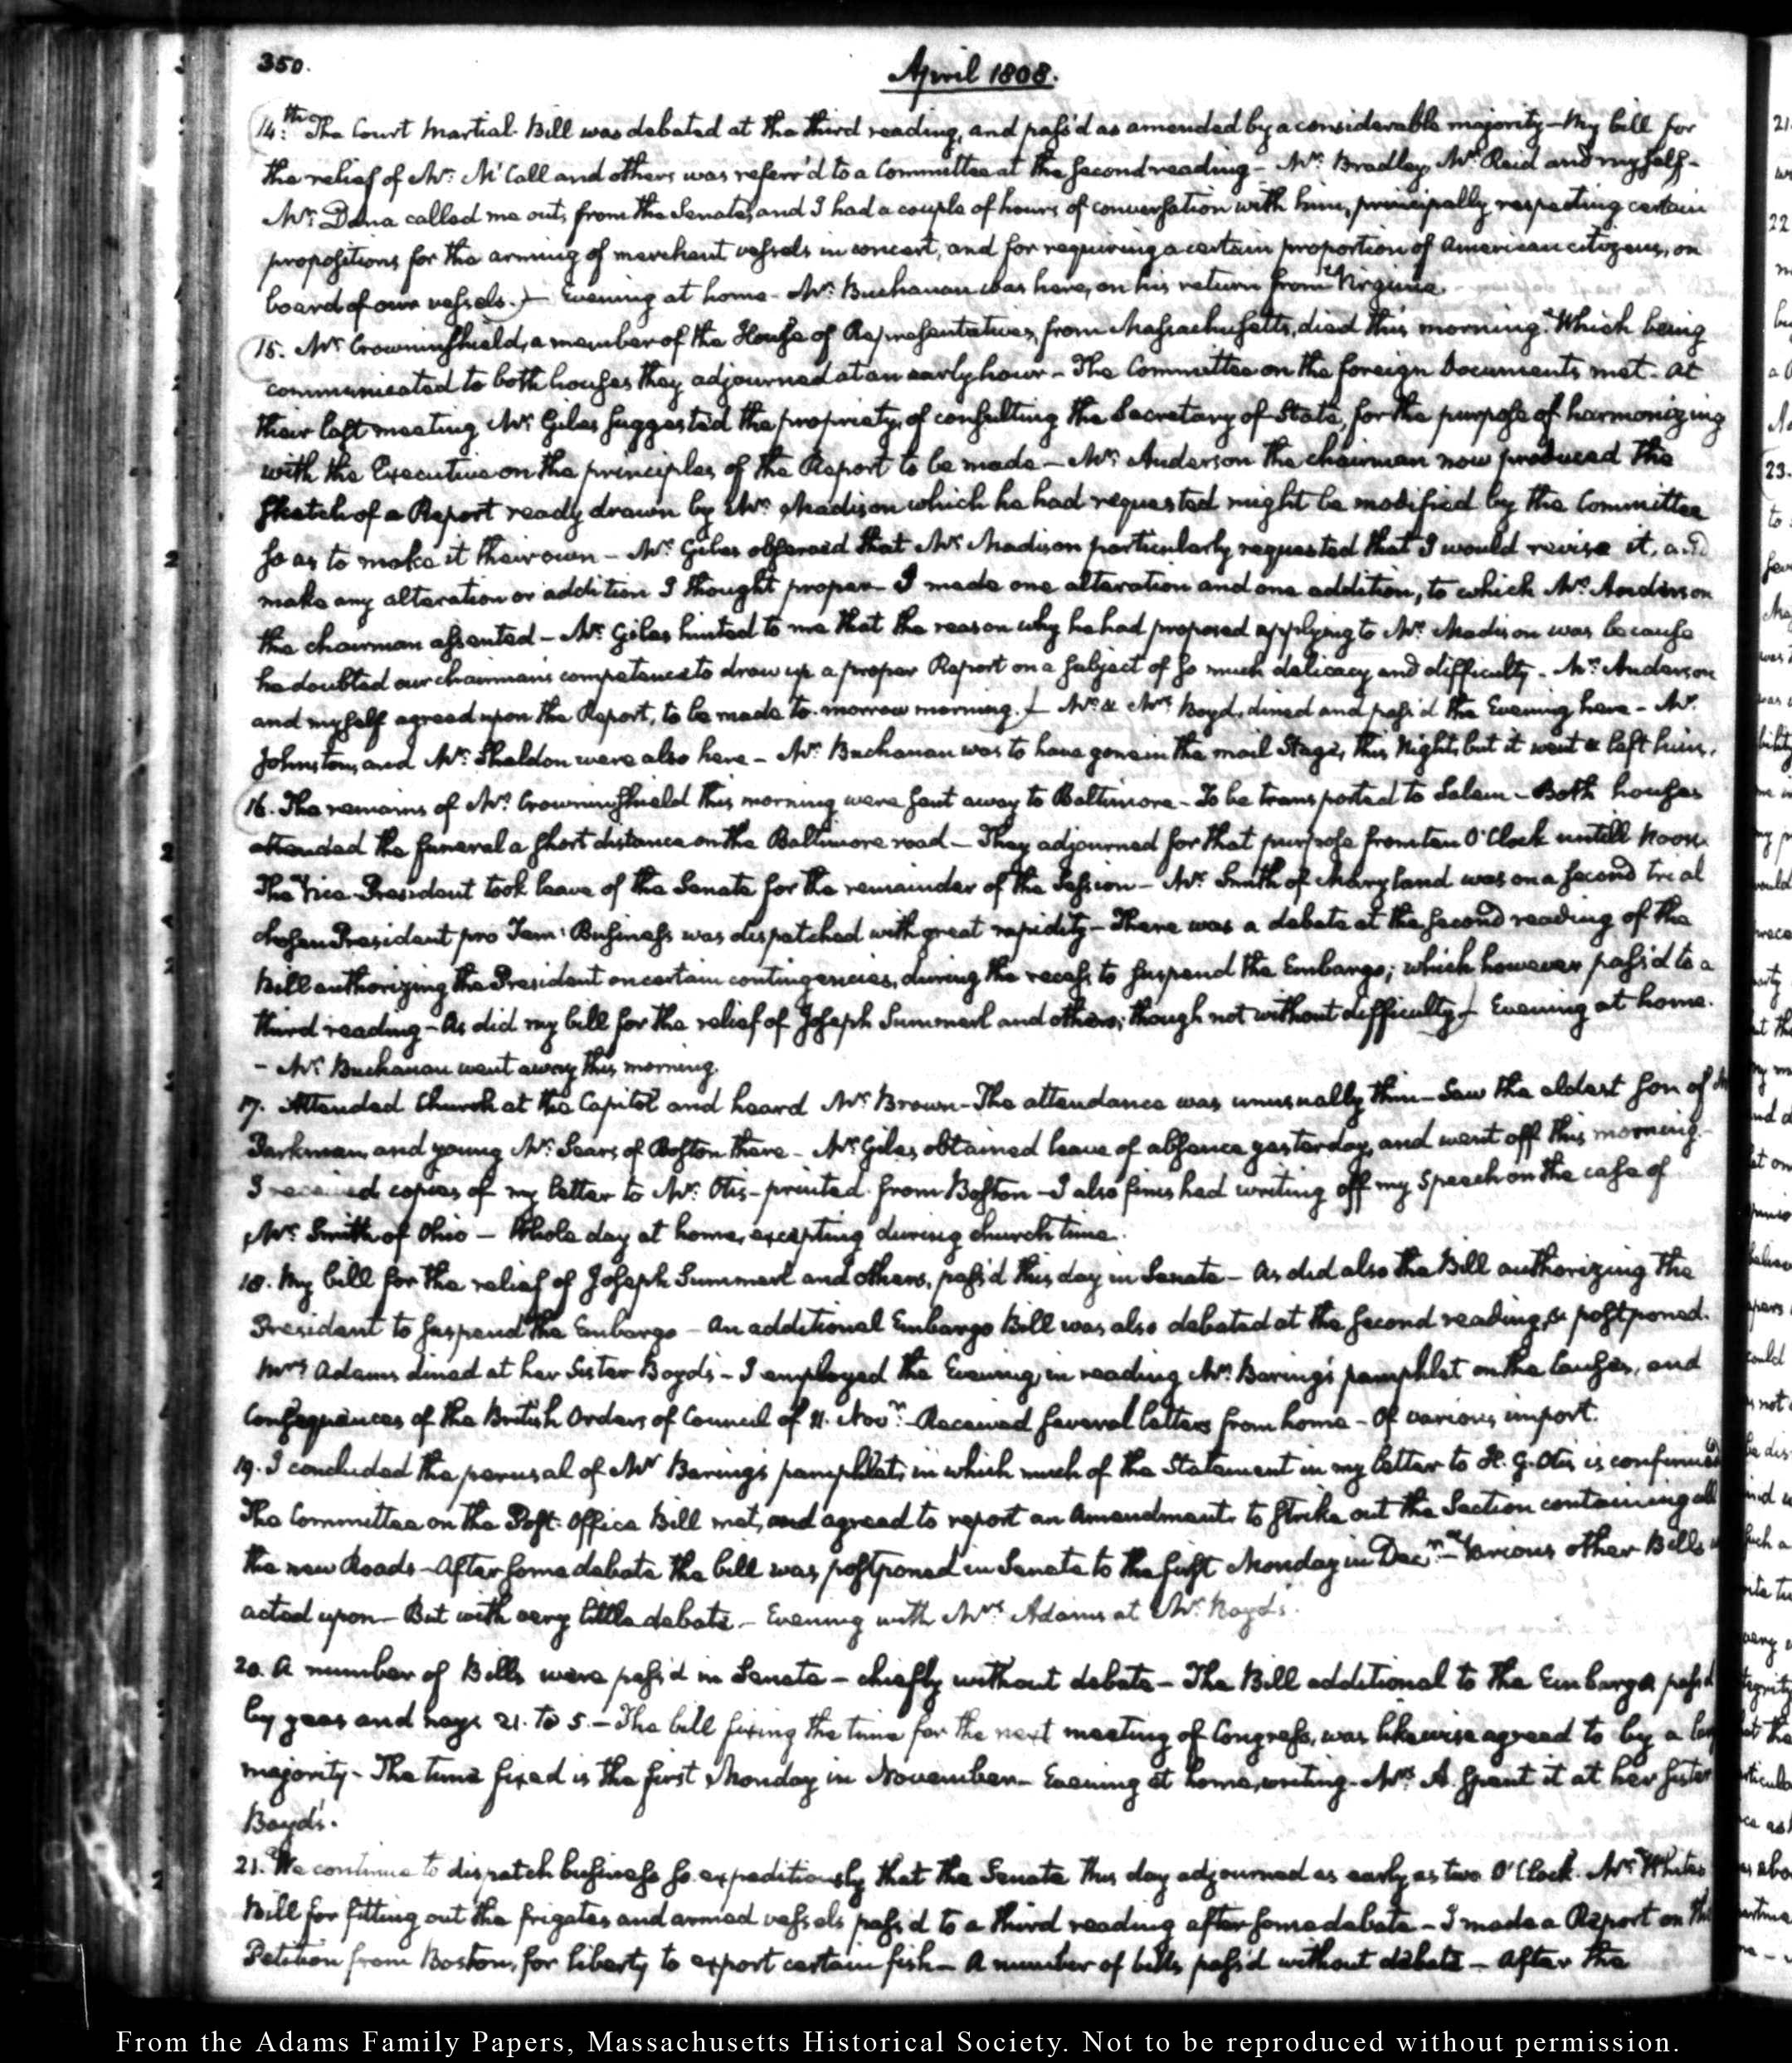 350.
April 1808.
14th: The Court Martial Bill was debated at the third reading, and pass'd as amended by a considerable majority — My bill for
the relief of Mr: M'Call and others was referr'd to a Committee at the second reading — Mr: Bradley, Mr: Reid and myself —
Mr: Dana called me out, from the Senate, and I had a couple of hours of conversation with him, principally respecting certain
propositions for the arming of merchant vessels in concert, and for requiring a certain proportion of American citizens, on
board of our vessels.) — Evening at home — Mr: Buchanan was here, on his return from Virginia.
15. Mr: Crowninshield, a member of the House of Representatives, from Massachusetts, died this morning. Which being
communicated to both houses they adjourned at an early hour — The Committee on the foreign Documents met — At
their last meeting Mr: Giles suggested the propriety, of consulting the Secretary of State, for the purpose of harmonizing
with the Executive on the principles of the Report to be made — Mr: Anderson the chairman now produced the
sketch of a Report ready drawn by Mr: Madison which he had requested might be modified by the Committee
so as to make it their own — Mr: Giles observed that Mr: Madison particularly requested that I would revise it, and
make any alteration or addition I thought proper — I made one alteration and one addition, to which Mr: Anderson
the chairman assented — Mr: Giles hinted to me that the reason why he had proposed applying to Mr: Madison was because
he doubted our chairman's competence to draw up a proper Report on a subject of so much delicacy and difficulty — Mr: Anderson
and myself agreed upon the Report, to be made to-morrow morning.) — Mr: & Mrs: Boyd, dined and pass'd the Evening here — Mr:
Johnston, and Mr: Sheldon were also here — Mr: Buchanan was to have gone in the mail Stage, this Night, but it went & left him.
16. The remains of Mr: Crowninshield this morning were sent away to Baltimore — To be transported to Salem — Both houses
attended the funeral a short distance on the Baltimore road — They adjourned for that purpose from ten O'Clock untill Noon.
The Vice-President took leave of the Senate for the remainder of the Session — Mr: Smith of Maryland was on a second trial
chosen President pro Tem: Business was dispatched with great rapidity — There was a debate at the second reading of the
Bill authorizing the President on certain contingencies, during the recess to suspend the Embargo; which however pass'd to a
third reading — As did my bill for the relief of Joseph Summerl and others; though not without difficulty) — Evening at home.
— Mr: Buchanan went away this morning.
17. Attended Church at the Capitol and heard Mr: Brown — The attendance was unusually thin — Saw the eldest son of
Parkman, and young Mr: Sears of Boston there — Mr: Giles obtained leave of absence yesterday, and went off this morning.
I received copies of my letter to Mr: Otis — printed from Boston — I also finished writing off my Speech on the case of
Mr: Smith of Ohio — Whole day at home, excepting during church time.
18. My bill for the relief of Joseph Summerl and others, pass'd this day in Senate — As did also the Bill authorizing the
President to suspend the Embargo — An additional Embargo Bill was also debated at the second reading, & postponed.
Mrs: Adams dined at her Sister Boyd's — I employed the Evening, in reading Mr: Baring's pamphlet on the causes, and
Consequences of the British Orders of Council of 11. Novr: — Received several letters from home — Of various import.
19. I concluded the perusal of Mr: Baring's pamphlet, in which much of the Statement in my letter to H. G. Otis is confirmed
The Committee on the Post-Office Bill met, and agreed to report an Amendment, to strike out the Section containing all
the new Roads — After some debate the bill was postponed in Senate to the first Monday in Decr: — Various other Bills
acted upon — But with very little debate — Evening with Mrs: Adams at Mr: Boyd's.
20. A number of Bills were pass'd in Senate — chiefly without debate — The Bill additional to the Embargo pass'd
by yeas and nays 21. to 5. — The bill fixing the time for the next meeting of Congress, was likewise agreed to by a
majority — The time fixed is the first Monday in November — Evening at home, writing — Mrs: A. spent it at her sister
Boyd's.
21. We continue to dispatch business so expeditiously that the Senate this day adjourned as early as two O'Clock. Mr: White's
Bill for fitting out the frigates and armed vessels pass'd to a third reading after some debate — I made a Report on the
Petition from Boston, for liberty to export certain fish — A number of bills pass'd without debate — After the
From the Adams Family Papers, Massachusetts Historical Society. Not to be reproduced without permission.